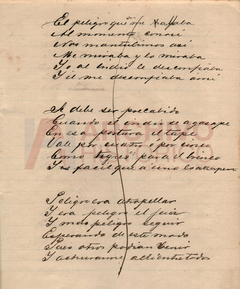 El peligro que me hallaba
Al momento conosí
Nos mantubimos así
Me miraba y lo miraba
Yo al indio le desconfiaba
Y él me desconfiaba a mí

A debe ser precabido
Cuando el indio se agasape
En esa postura el tape
Vale por cuatro o por cinco
Como tigre es para el brinco
Y es facil que a uno lo atrape

Peligro era atropellar
Y era peligro el juir
Y más peligro seguir
Esperando de este modo
Pues otros podian venir
Y asinarme allí entre todos